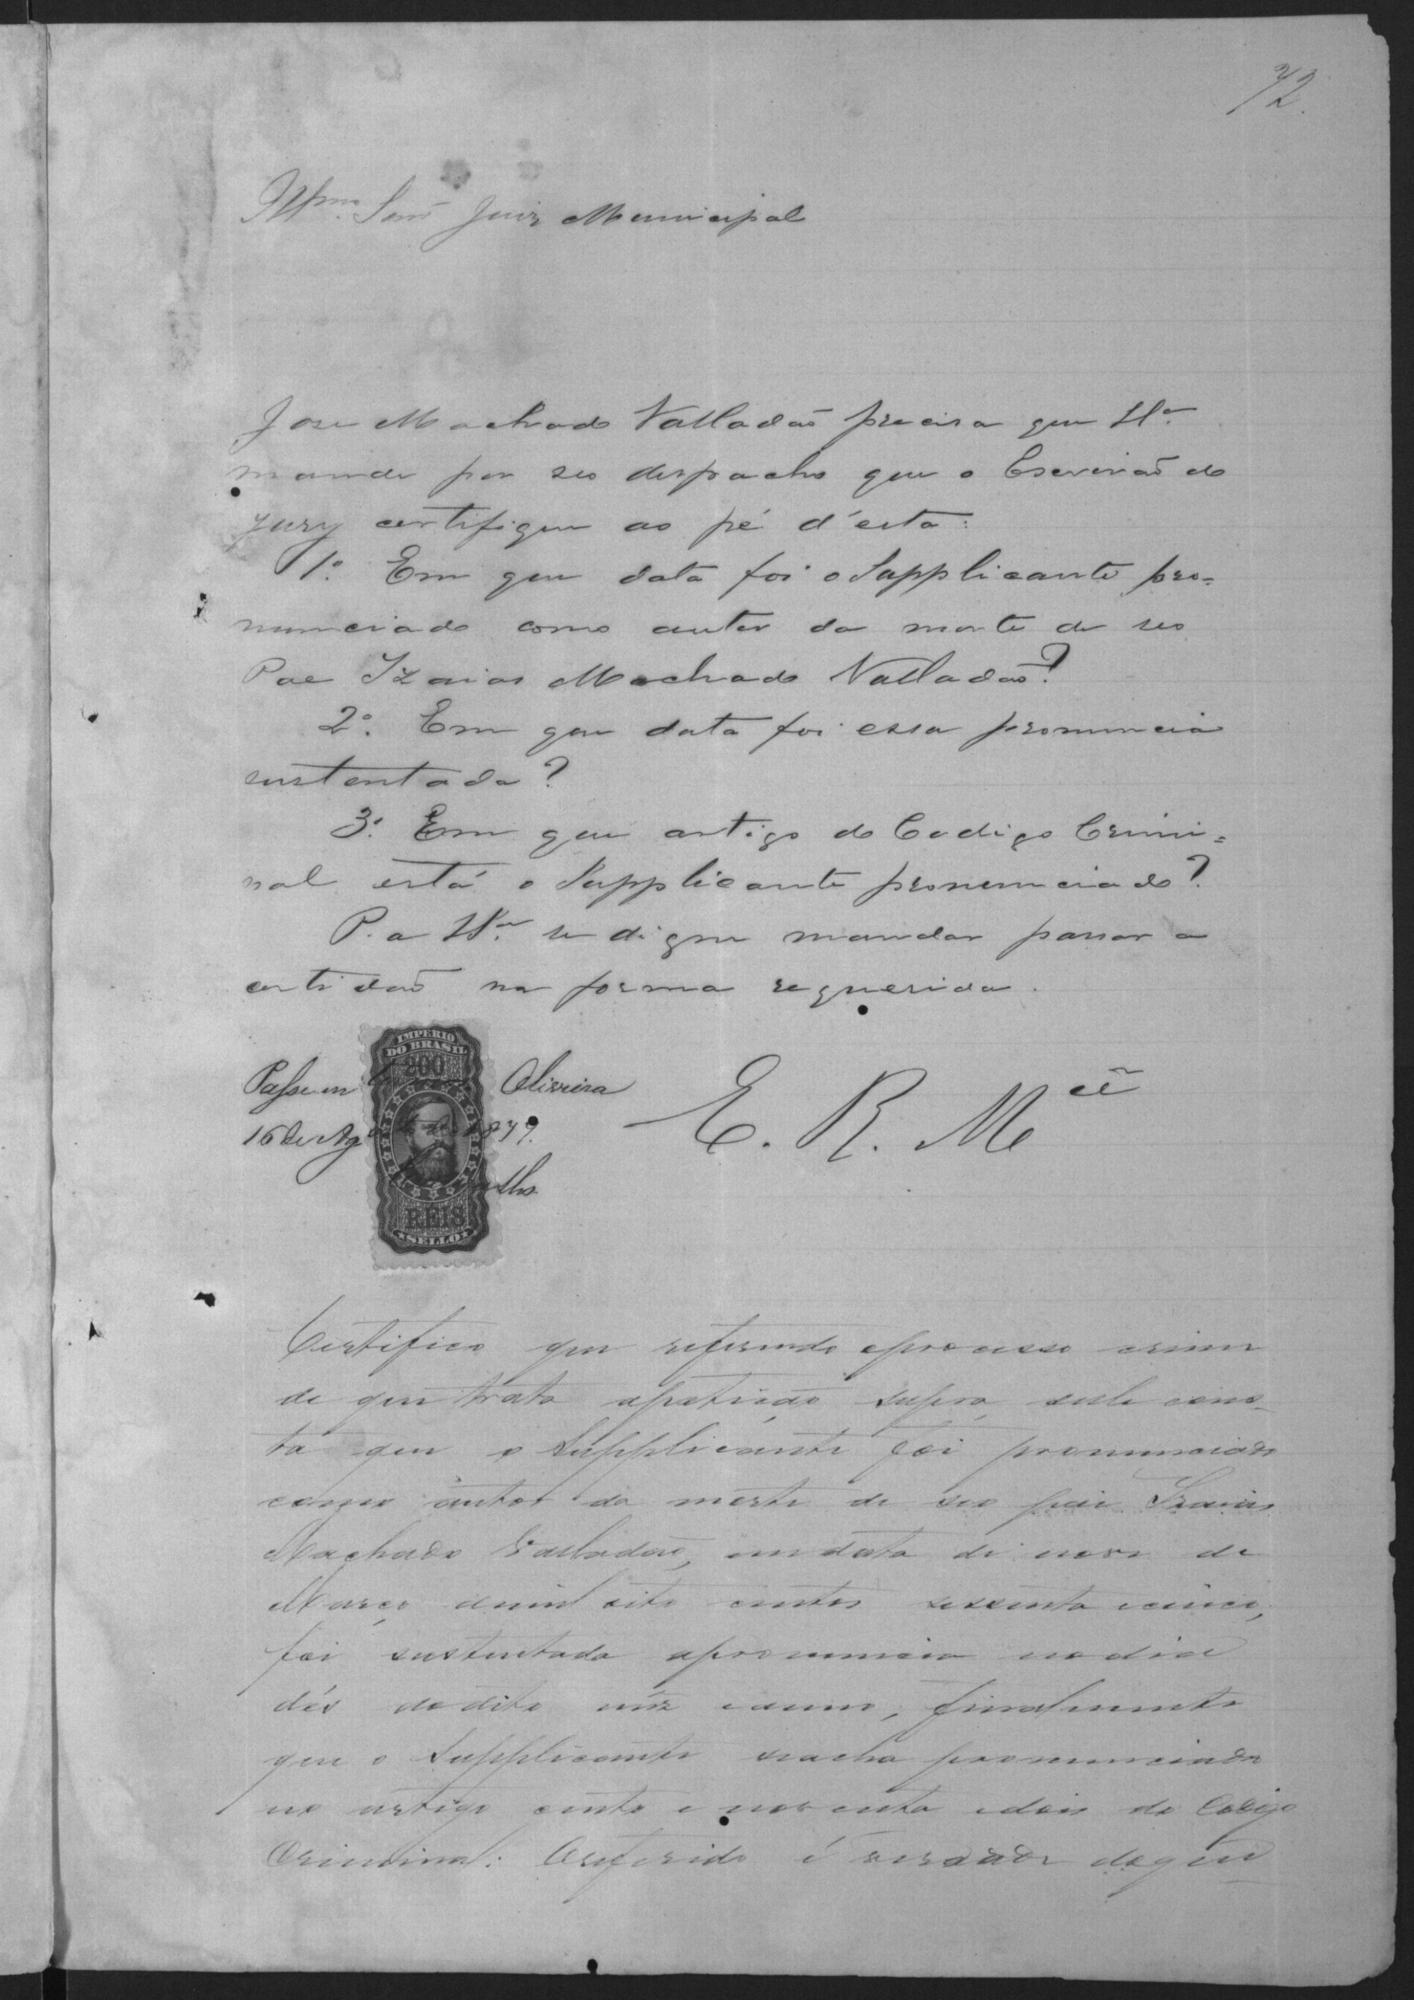 72.
Illmo. Senr Juiz Municipal
Jose Machado Valladão precisa que Va.
mande por seo despacho que o Escrivão do
Jury certifique ao pé d'esta:
1º. Em que data foi o Supplicante pro=
nunciado como autor da morte de seo
Pae Izaias Machado Valladão?
2º. Em que data foi essa pronuncia
sustentada?
3º. Em que artigo do Codigo Crimi=
nal está o Supplicante pronunciado?
P. a Va. se digne mandar passar a
certidão na forma requerida.
IMPERIO
DO BRASIL
200
REIS
SELLO
Passe em Oliveira
16 de Agto 1879.
E. R. Mcê
Certifico que referindo oprocesso crime
de que trata apetição supra, delle cons-
ta que o Supplicante foi pronunciado
como autor da morte de seo pai Izaias
Machado Valladão, em data de nove de
Março demil oito centos sessenta ecinco,
foi sustentada apronuncia nodia
dés dodito mez eanno, finalmente
que o Supplicante seacha pronunciado
no artigo cento e noventa edois do Codigo
Criminal: Oreferido é verdade doque